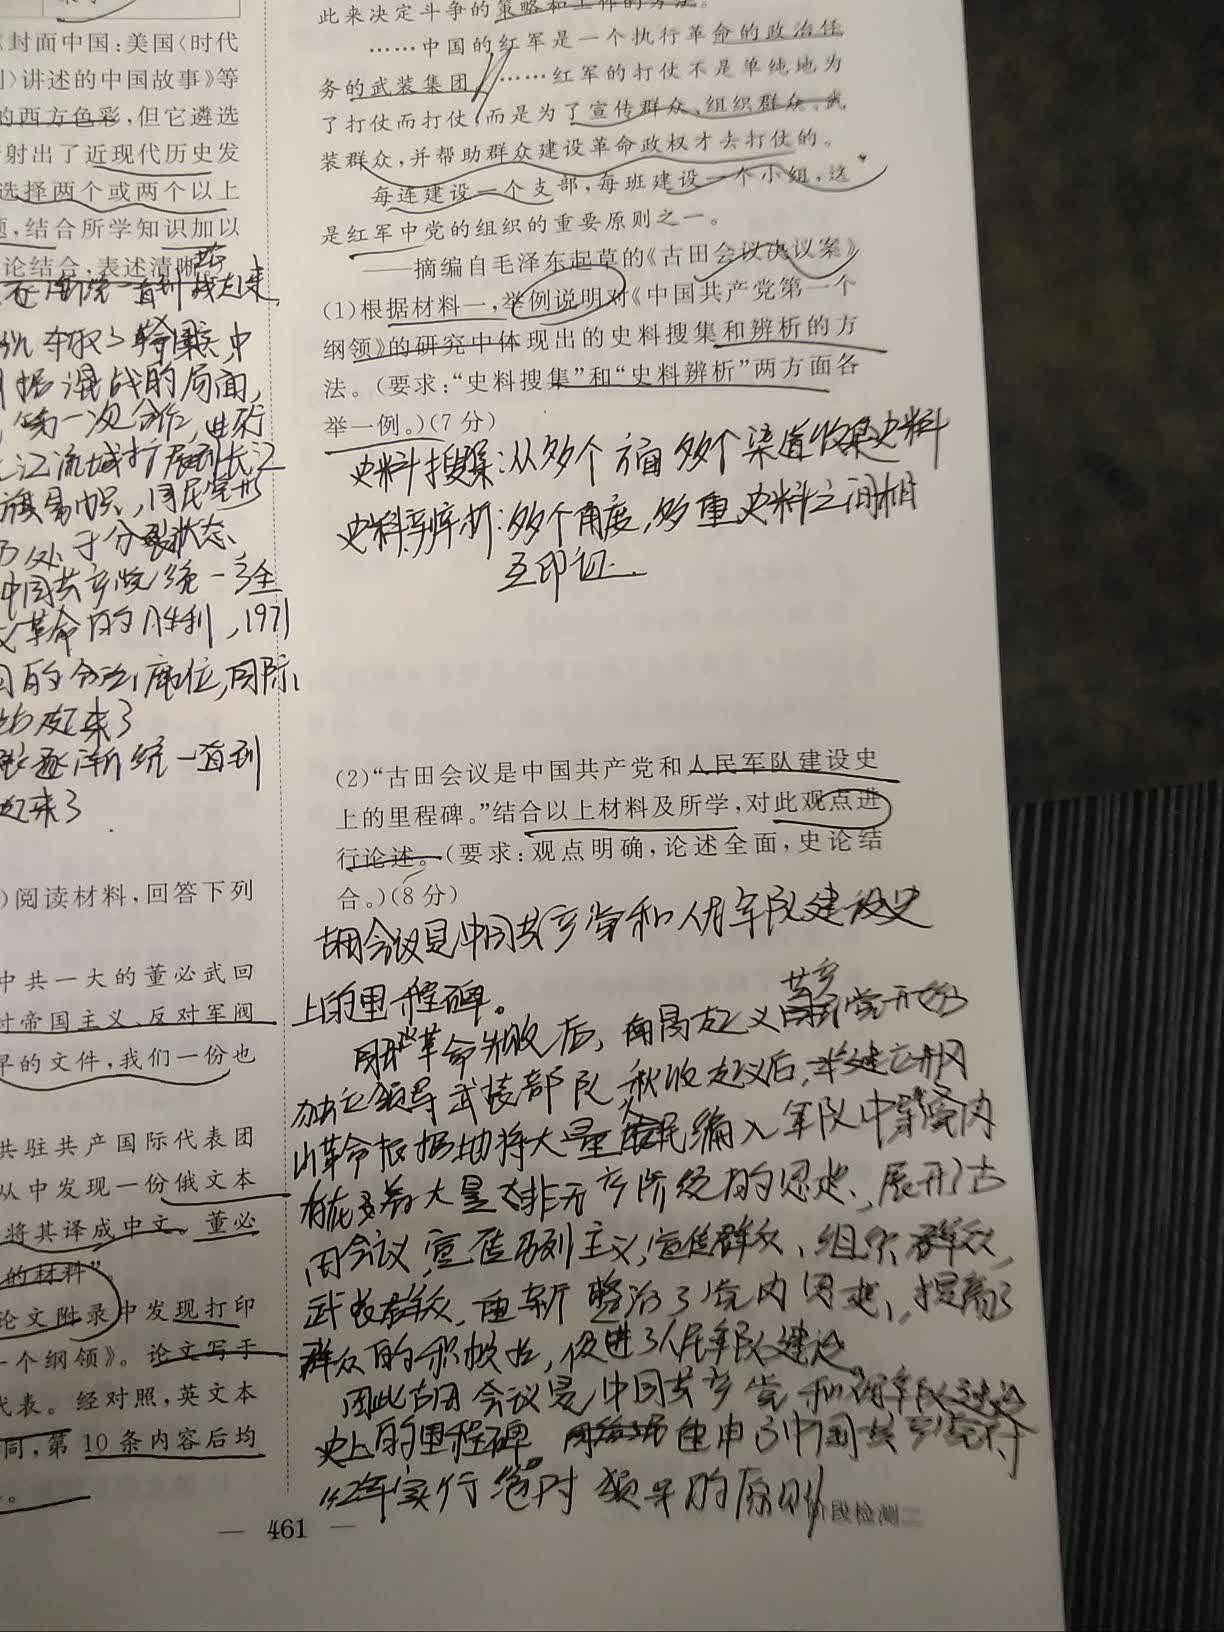 《封面中国:美国〈时代
讲述的中国故事》等
的西方色彩,但它遴选
射出了近现代历史发
选择两个或两个以上
结合所学知识加以
论结合,表述清晰
混战的局面,
第一次合作,进行
江流域扩展到长江
处于分裂状态、
中国共产党统一全
革命的胜利,1971
的合法席位,国际
起来了
逐渐统一直到
起来了
)阅读材料,回答下列
中共一大的董必武回
对帝国主义、反对军阀
早的文件,我们一份也
共驻共产国际代表团
从中发现一份俄文本
将其译成中文。董必
的材料”。
论文附录中发现打印
一个纲领》。论文写于
代表。经对照,英文本
同,第10条内容后均
此来决定斗争的策略和工作的方法。
……中国的红军是一个执行革命的政治任
务的武装集团。……红军的打仗不是单纯地为
了打仗而打仗,而是为了宣传群众、组织群众、武
装群众,并帮助群众建设革命政权才去打仗的。
每连建设一个支部,每班建设一个小组,这
是红军中党的组织的重要原则之一。
——摘编自毛泽东起草的《古田会议决议案》
(1)根据材料一,举例说明对《中国共产党第一个
纲领》的研究中体现出的史料搜集和辨析的方
法。(要求:“史料搜集”和“史料辨析”两方面各
举一例。)(7分)
史料搜集:从多个方面多个渠道收集史料
史料辨析:多个角度,多重史料之间相
互印证.
(2)“古田会议是中国共产党和人民军队建设史
上的里程碑。”结合以上材料及所学,对此观点进
行论述。(要求:观点明确,论述全面,史论结
合。)(8分)
古田会议是中国共产党和人民军队建设史
上的里程碑。
国民大革命失败后,南昌起义共产党开始
独立领导武装部队,秋收起义后,建立井冈
山革命根据地将大量农民编入军队中等党内
存在着大量非无产阶级的思想、展开了古
田会议,宣传马列主义,宣传群众、组织群众,
武装群众,重新整治了党内思想,提高了
群众的积极性,促进了人民军队建设。
因此古田会议是中国共产党和人民军队建设
史上的里程碑 重申了中国共产党对
红军实行绝对领导的原则
— 461 —
阶段检测二